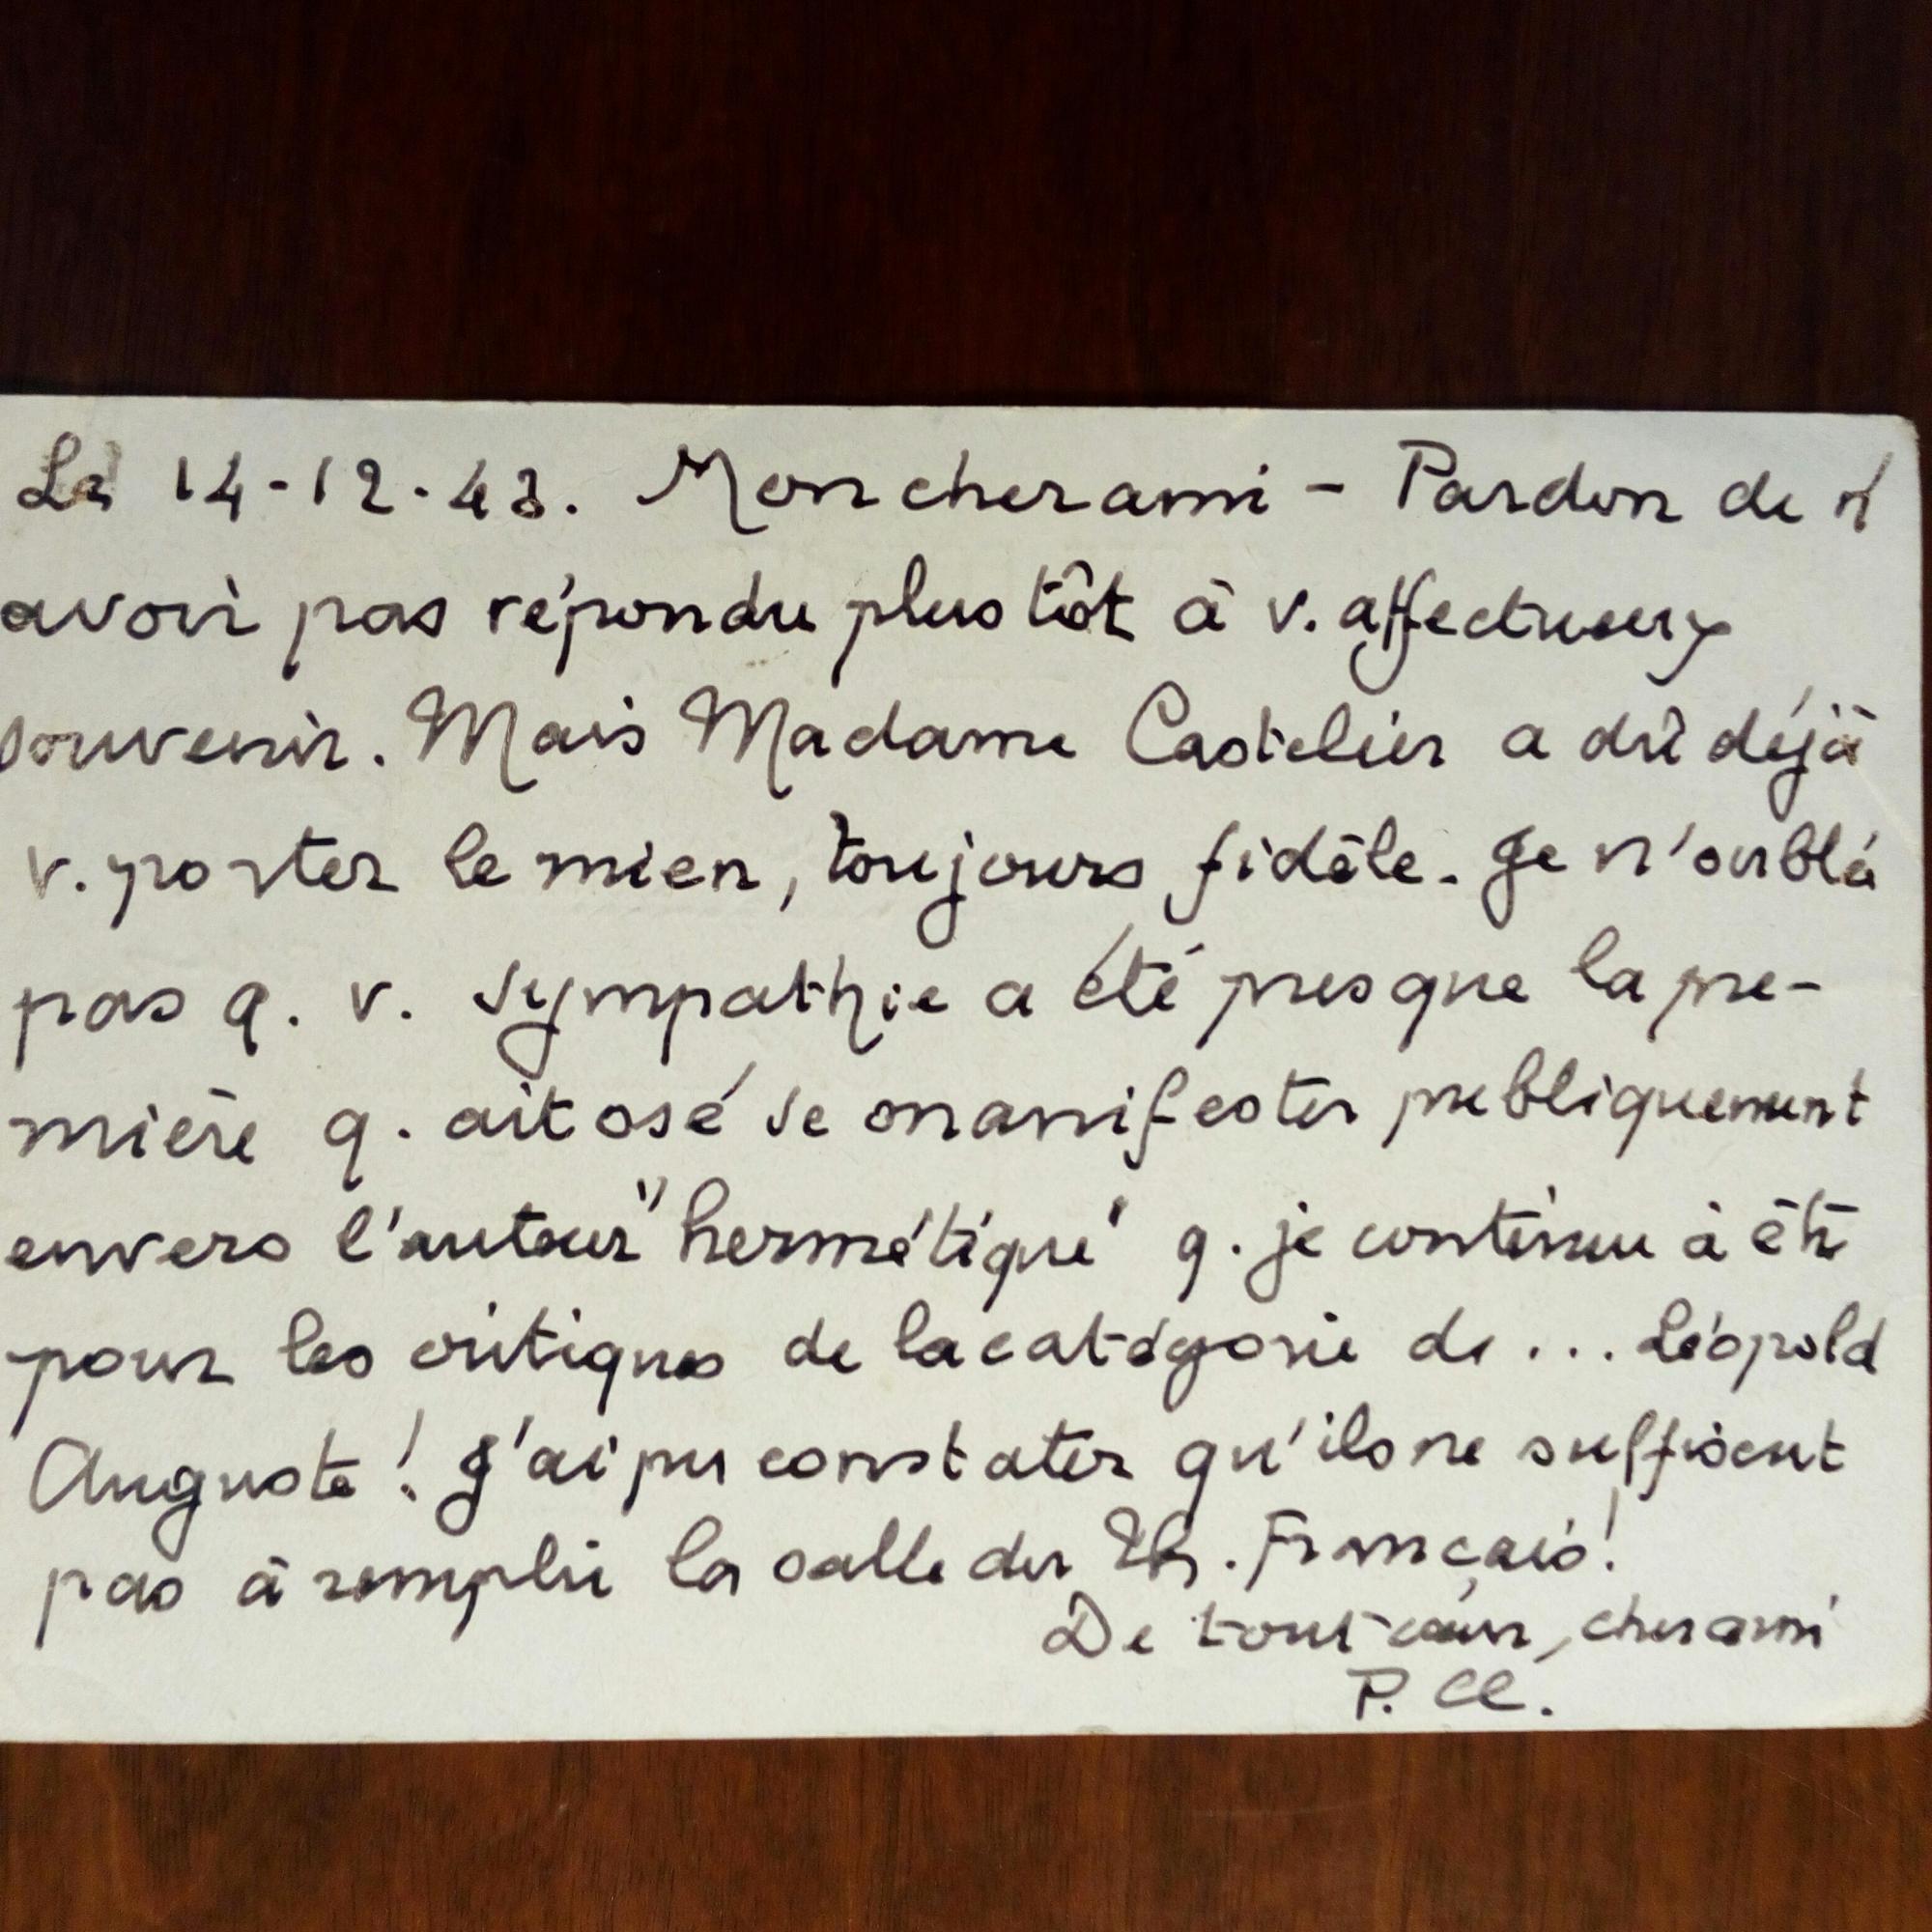 Le 14-12-43. Mon cher ami - Pardon de n'
avoir pas répondu plus tôt à v. affectueux
souvenir. Mais Madame Castelier a dû déjà
v. porter le mien, toujours fidèle. Je n'oublie
pas q. v. sympathie a été presque la pre-
mière q. ait osé se manifester publiquement
envers l'auteur "hermétique" q. je continue à être
pour les critiques de la catégorie de ... Léopold
Auguste ! J'ai pu constater qu'ils ne suffisent
pas à remplir la salle du Th. Français !
De tout cœur, cher ami
P. Cl.